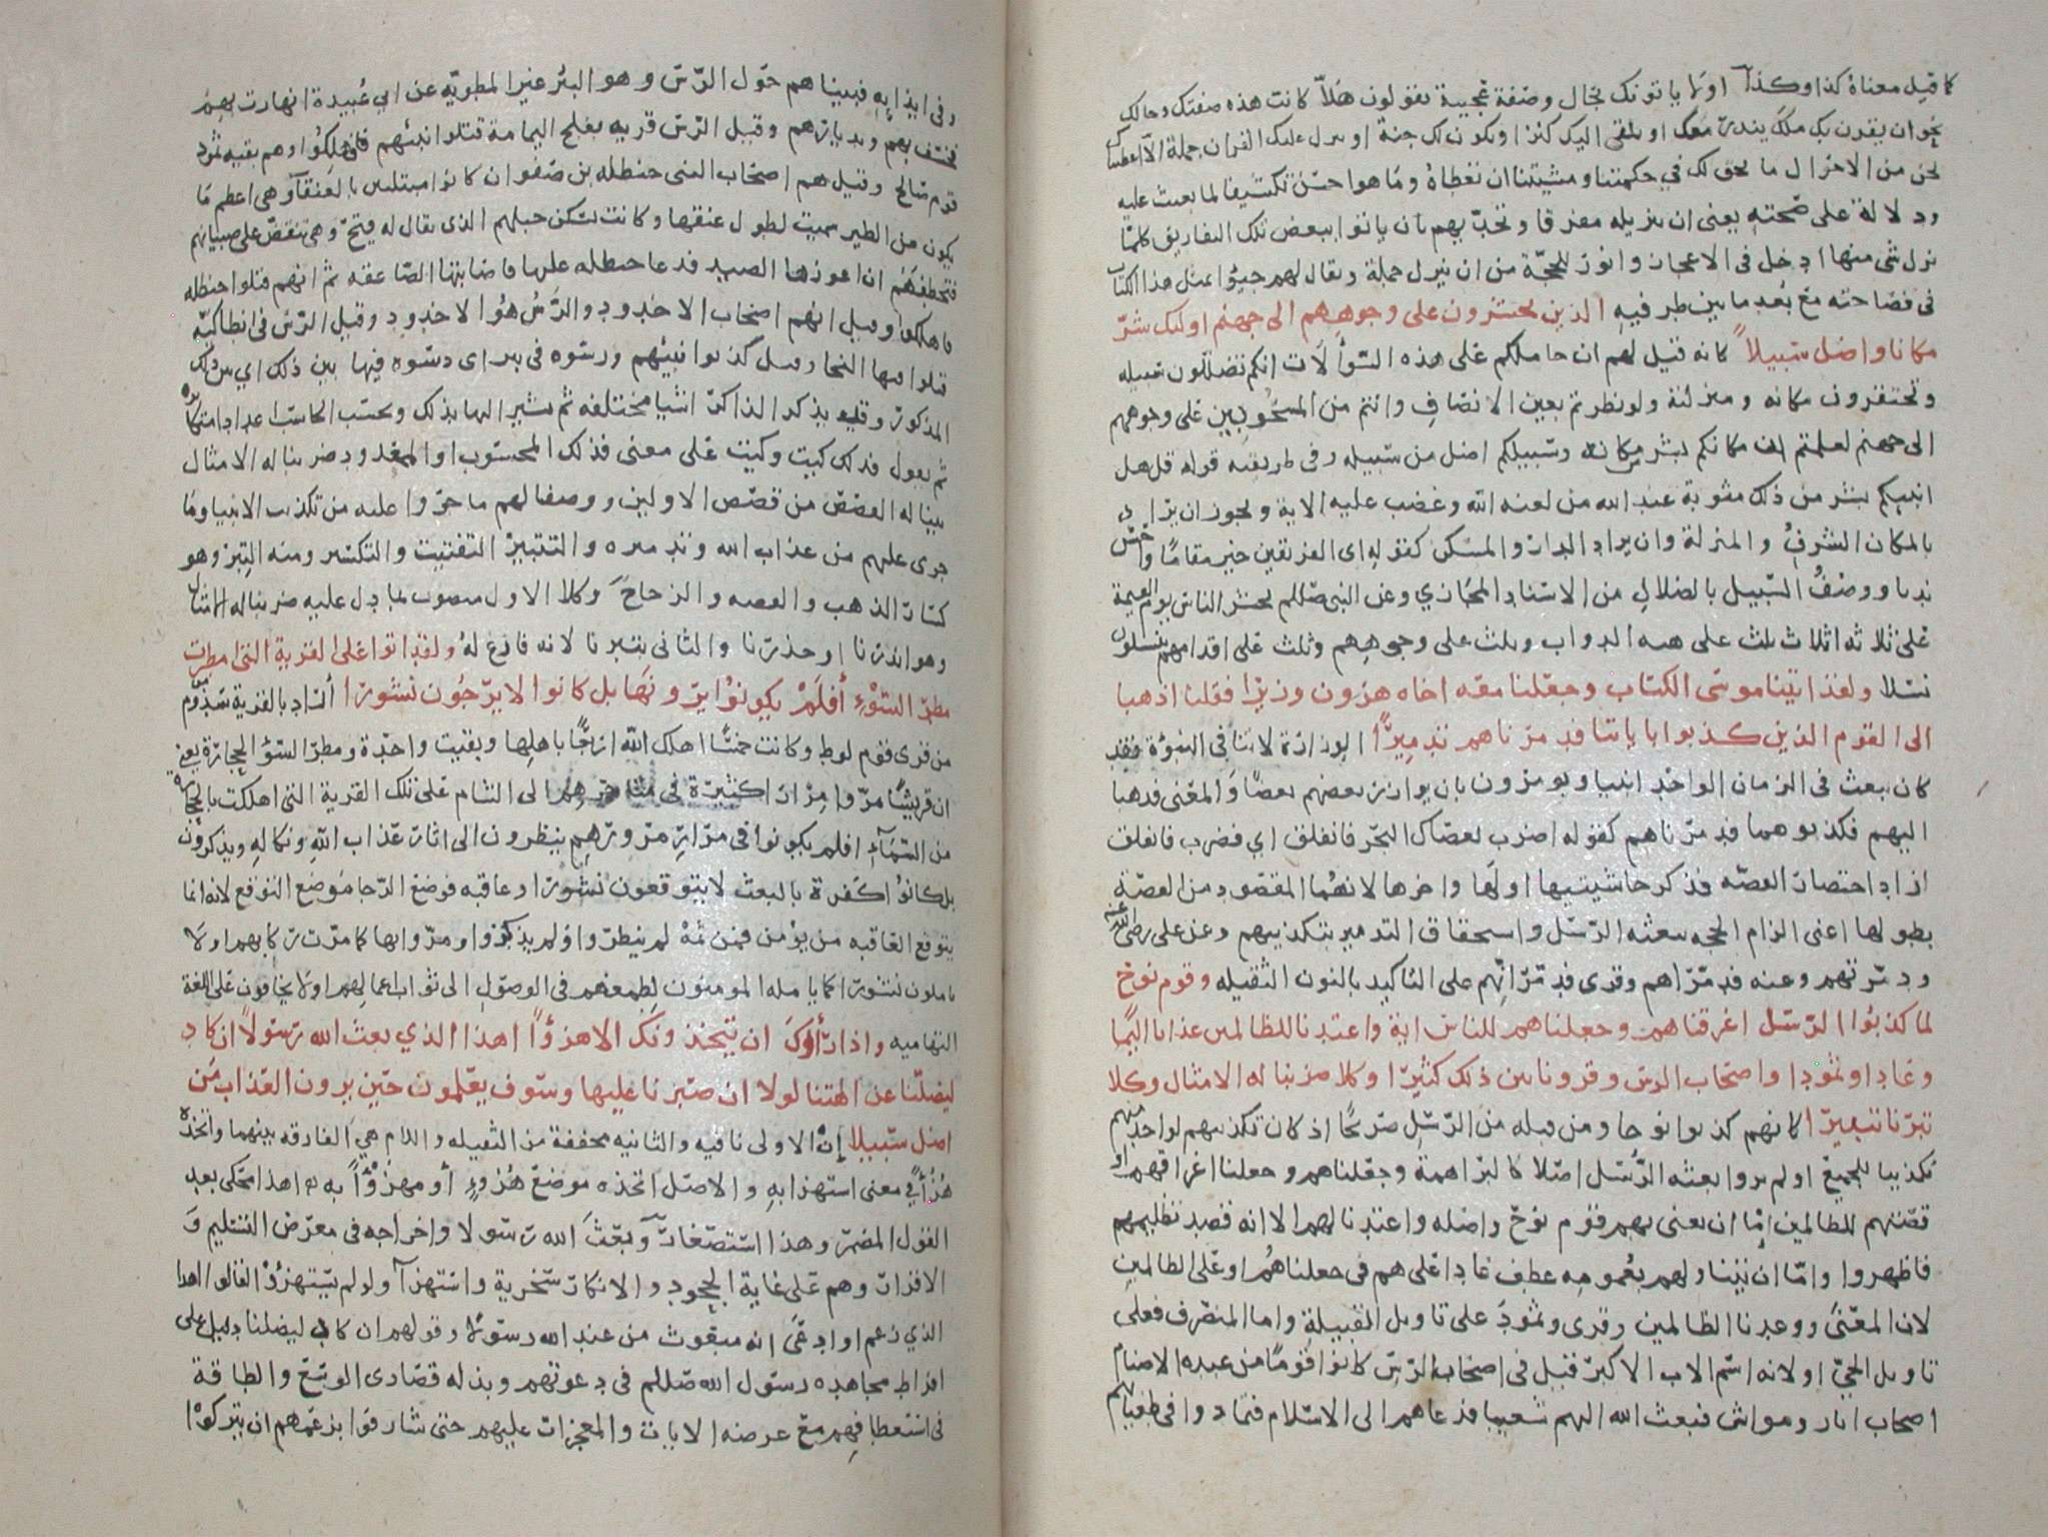 كما قيل معناه كذا وكذا او لا ياتونك بحال وصفة عجيبة يقولون هلا كانت هذه صفتك وحالك
نحو ان يقرن بك ملك ينذر معك او يلقى اليك كنز او يكون لك جنة او ينزل عليك القران جملة الا اعطيناك
نحن من الاحوال ما يحق لك في حكمتنا ومشيتنا ان تعطاه وما هو احسن تكشيفا لما بعثت عليه
ودلالة على صحته يعنى ان تنزيله مفرقا وتحديهم بان ياتوا ببعض تلك التفاريق كلما
نزل شى منها ادخل فى الاعجاز وانور للحجة من ان ينزل جملة ويقال لهم جيؤا بمثل هذا الكتاب
فى فصاحته مع بعد ما بين طرفيه الذين يحشرون على وجوههم الى جهنم اوليك شر
مكانا واضل سبيلا كانه قيل لهم ان حاملكم على هذه السؤالات انكم تضللون سبيله
وتحتقرون مكانه ومنزلته ولو نظرتم بعين الانصاف وانتم من المسحوبين على وجوههم
الى جهنم لعلمتم ان مكانكم شر من مكانه وسبيلكم اضل من سبيله وفى طريقته قوله قل هل
انبيكم بشر من ذلك مثوبة عند الله من لعنه الله وغضب عليه الاية ويجوز ان يراد
بالمكان الشرف والمنزلة وان يراد الدار والمسكن كقوله اى الفريقين خير مقاما واحسن
نديا ووصف السبيل بالضلال من الاسناد المجازي وعن النبى صللم يحشر الناس يوم القيمة
على ثلاثه اثلاث ثلث على الدواب وثلث على وجوههم وثلث على اقدامهم ينسلون
نسلا ولقد اتينا موسى الكتاب وجعلنا معه اخاه هرون وزيرا فقلنا اذهبا
الى القوم الذين كذبوا باياتنا فدمرناهم تدميرا الوزارة لا تنافى النبوة فقد
كان يبعث فى الزمان الواحد انبيا ويومرون بان يوازر بعضهم بعضا والمعنى فذهبا
اليهم فكذبوهما فدمرناهم كقوله اضرب بعصاك البحر فانفلق اي فضرب فانفلق
اراد اختصار القصه فذكر حاشيتيها اولها واخرها لانهما المقصود من القصة
بطولها اعنى الزام الحجه ببعثه الرسل واستحقاق التدمير بتكذيبهم وعن على رضى الله عنه
ودمرتهم وعنه فدمراهم وقرى فدمرانهم على التاكيد بالنون الثقيله وقوم نوح
لما كذبوا الرسل اغرقناهم وجعلناهم للناس اية واعتدنا للظالمين عذابا اليما
وعادا وثمودا واصحاب الرس وقرونا بين ذلك كثيرا وكلا ضربنا له الامثال وكلا
تبرنا تتبيرا كانهم كذبوا نوحا ومن قبله من الرسل صريحا اذ كان تكذيبهم لواحد منهم
تكذيبا للجميع او لم يروا بعثه الرسل اصلا كالبراهمة وجعلناهم وجعلنا اغراقهم او
قصتهم للظالمين اما ان يعنى بهم قوم نوح واصله واعتدنا لهم الا انه قصد تظليمهم
فاظهروا واما ان يتناولهم بعمومه عطف عادا على هم فى جعلناهم او على الظالمين
لان المعنى ووعدنا الظالمين وقرى وثمود على تاويل القبيلة واما المنصرف فعلى
تاويل الحي او لانه اسم الاب الاكبر قيل فى اصحاب الرس كانوا قوما من عبده الاصنام
اصحاب ابار ومواش فبعث الله اليهم شعيبا فدعاهم الى الاسلام فتمادوا فى طغيانهم
وفى ايذايه فبينا هم حول الرس وهو البئر غير المطويه عن ابي عبيدة انهارت بهم
فخسف بهم وبديارهم وقيل الرس قريه بفلج اليمامة قتلوا نبيهم فهلكوا وهم بقيه ثمود
قوم صالح وقيل هم اصحاب النبى حنظله بن صفوان كانوا مبتلين بالعنقآ وهى اعظم ما
يكون من الطير سميت لطول عنقها وكانت تسكن جبلهم الذى يقال له فتح وهى تنقض على صبيانهم
فتخطفهم ان اعوزها الصيد فدعا حنظله عليها فاصابتها الصاعقه ثم انهم قتلوا حنظله
فاهلكوا وقيل انهم اصحاب الاخدود والرس هو الاخدود وقيل الرس فى انطاكيه
قتلوا فيها النجار وقيل كذبوا نبيهم ورسوه فى بير اى دسوه فيها بين ذلك اي بين ذلك
المذكور وقد يذكر الذاكر اشيا مختلفه ثم يشير اليها بذلك ويحسب الحاسب اعدادا متكاثره
ثم يقول فذلك كيت وكيت على معنى فذلك المحسوب او المعدود ضربنا له الامثال
بينا له القصص من قصص الاولين ووصفنا لهم ما جروا عليه من تكذيب الانبيا وما
جرى عليهم من عذاب الله وتدميره والتتبير التفتيت والتكسير ومنه التبر وهو
كسار الذهب والفضه والزجاج وكلا الاول منصوب بما دل عليه ضربنا له الامثال
وهو انذرنا او حذرنا والثانى بتبرنا لانه فارغ له ولقد اتوا على القرية التى امطرت
مطر السوء أفلم يكونوا يرونها بل كانوا لا يرجون نشورا أراد بالقرية سذوم
من قرى قوم لوط وكانت خمسا اهلك الله اربعا باهلها وبقيت واحدة ومطر السؤ الحجارة يعني
ان قريشا مروا مرارا كثيرة فى متاجرهم الى الشام على تلك القرية التى اهلكت بالحجارة
من السماء افلم يكونوا فى مرار مرورهم ينظرون الى اثار عذاب الله ونكاله ويذكرون
بل كانوا كفرة بالبعث لا يتوقعون نشورا وعاقبه فوضع الرجا موضع التوقع لانه انما
يتوقع العاقبه من يؤمن فمن ثم لم ينظروا ولم يذكروا ومروا بها كما مرت ركابهم او لا
ياملون نشورا كما يامله المومنون لطمعهم فى الوصول الى ثواب اعمالهم او لا يخافون على اللغة
التهاميه واذا رأوك ان يتخذونك الا هزؤا اهذا الذي بعث الله رسولا ان كاد
ليضلنا عن الهتنا لولا ان صبرنا عليها وسوف يعلمون حين يرون العذاب من
اضل سبيلا إن الاولى نافيه والثانيه مخففة من الثقيله واللام هي الفارقه بينهما واتخذه
هزؤا في معنى استهزا به والاصل اتخذه موضع هزؤ أو مهزؤا به اهذا محكى بعد
القول المضمر وهذا استصغار وبعث الله رسولا واخراجه فى معرض التسليم و
الاقرار وهم على غاية الجحود والانكار سخرية واستهزآ ولو لم يستهزؤا لقالوا اهذا
الذي زعم او ادعى انه مبعوث من عند الله رسولا وقولهم ان كاد ليضلنا دليل على
افراط مجاهده رسول الله صللم فى دعوتهم وبذله قصارى الوسع والطاقة
فى استعطافهم مع عرضه الايات والمعجزات عليهم حتى شارفوا بزعمهم ان يتركوا